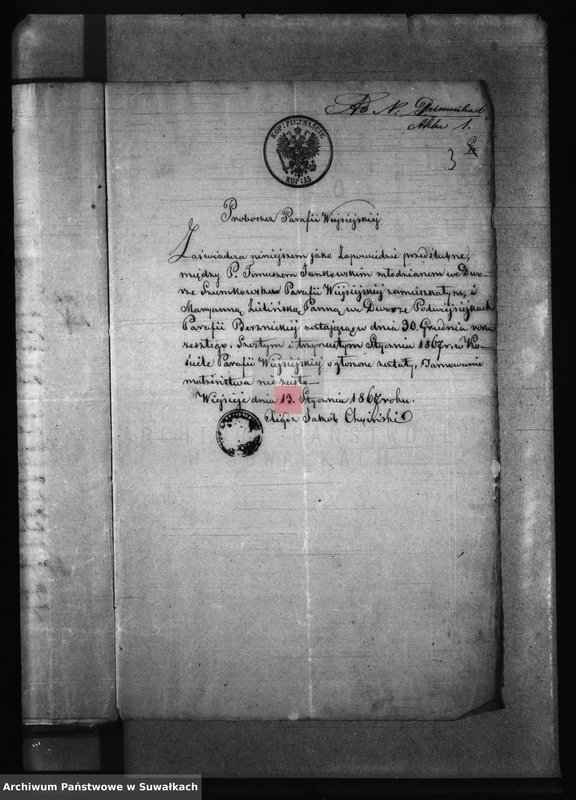 Ad N. Dziennika 1
Aktu 1.
3
KOP: PIĘTNAŚCIE
KOP: 15
Proboszcz Parafii Wiejsiejskiej
Zaświadcza niniejszem jako Zapowiedzie przedślubne,
między P. Tomaszem Jankowskim młodzianem we Dwo-
rze Szumkowskim Parafii Wiejsiejskiej zamieszkałym, i
Maryanną Zielińską Panną, we Dworze Podwiejsiejkach
Parafii Berznickiej zostającą, w dniu 30. Grudnia roku
zeszłego, Szóstym i trzynastym Stycznia 1867. r. w Ko-
ściele Parafii Wiejsiejskiej ogłoszone zostały, Tamowanie
małżeństwa nie zaszło —
Wiejsieje dnia 13. Stycznia 1867 roku.
Xiądz Jakób Chyliński
ARCHIWUM PAŃSTWOWE
W SUWAŁKACH
Archiwum Państwowe w Suwałkach